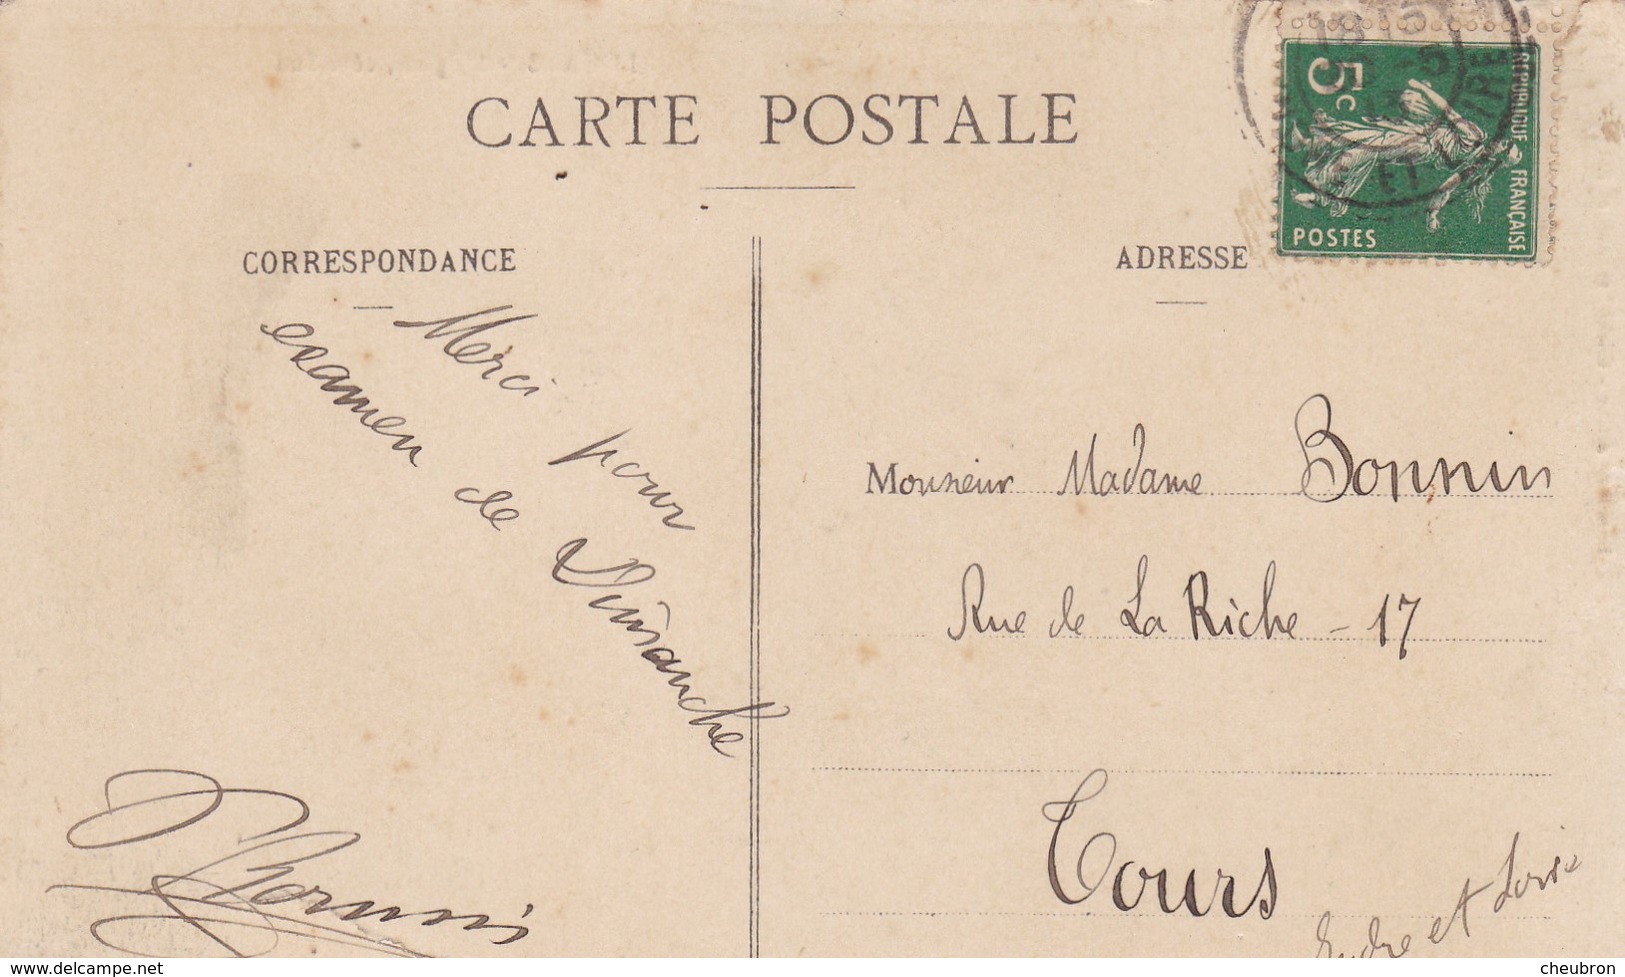 CARTE POSTALE
CORRESPONDANCE
Merci pour
examen de Dimanche
ADRESSE
5c
REPUBLIQUE FRANÇAISE
POSTES
ET
Monsieur Madame Bonnin
Rue de La Riche - 17
Tours
Indre et Loire
© cheubron
www.delcampe.net